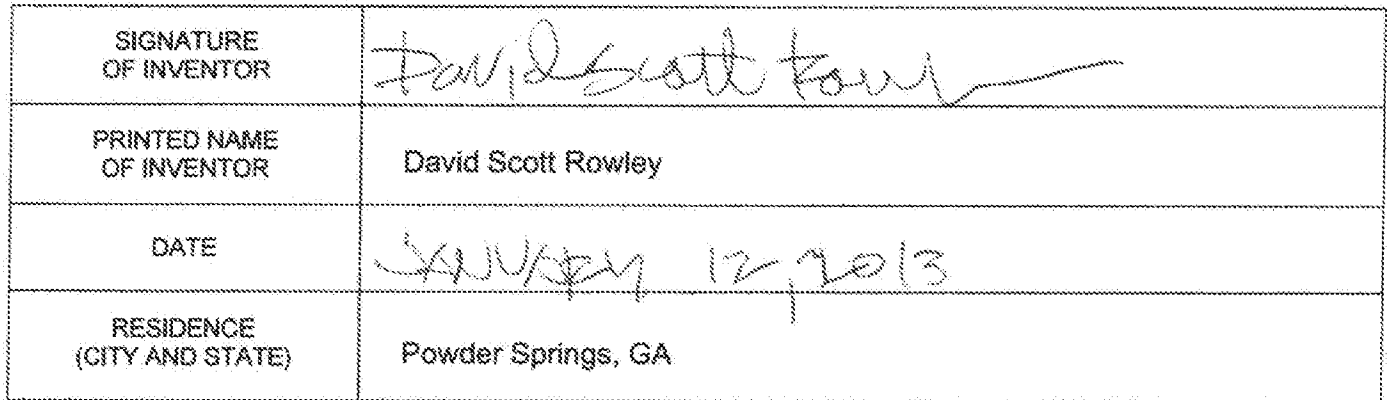 SIGNATURE
OF INVENTOR
David Scott Rowley
PRINTED NAME
OF INVENTOR
David Scott Rowley
DATE
JANUARY 12, 2013
RESIDENCE
(CITY AND STATE)
Powder Springs, GA